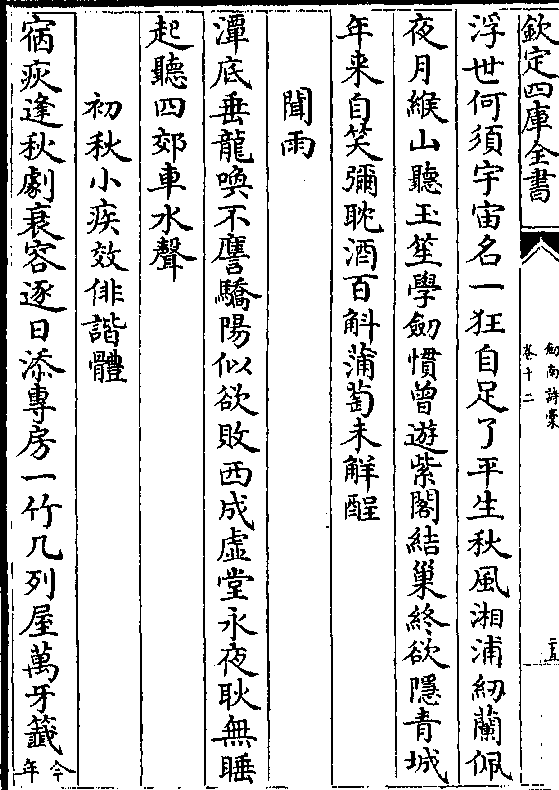 欽定四庫全書
劍南詩稾
卷十二
二五
浮世何須宇宙名一狂自足了平生秋風湘浦紉蘭佩
夜月緱山聽玉笙學劍慣曾遊紫閣結巢終欲隱青城
年来自笑彌耽酒百斛蒲萄未解酲
聞雨
潭底垂龍喚不譍驕陽似欲敗西成虛堂永夜耿無睡
起聽四郊車水聲
初秋小疾效俳諧體
宿疢逢秋劇衰容逐日添專房一竹几列屋萬牙籤今年